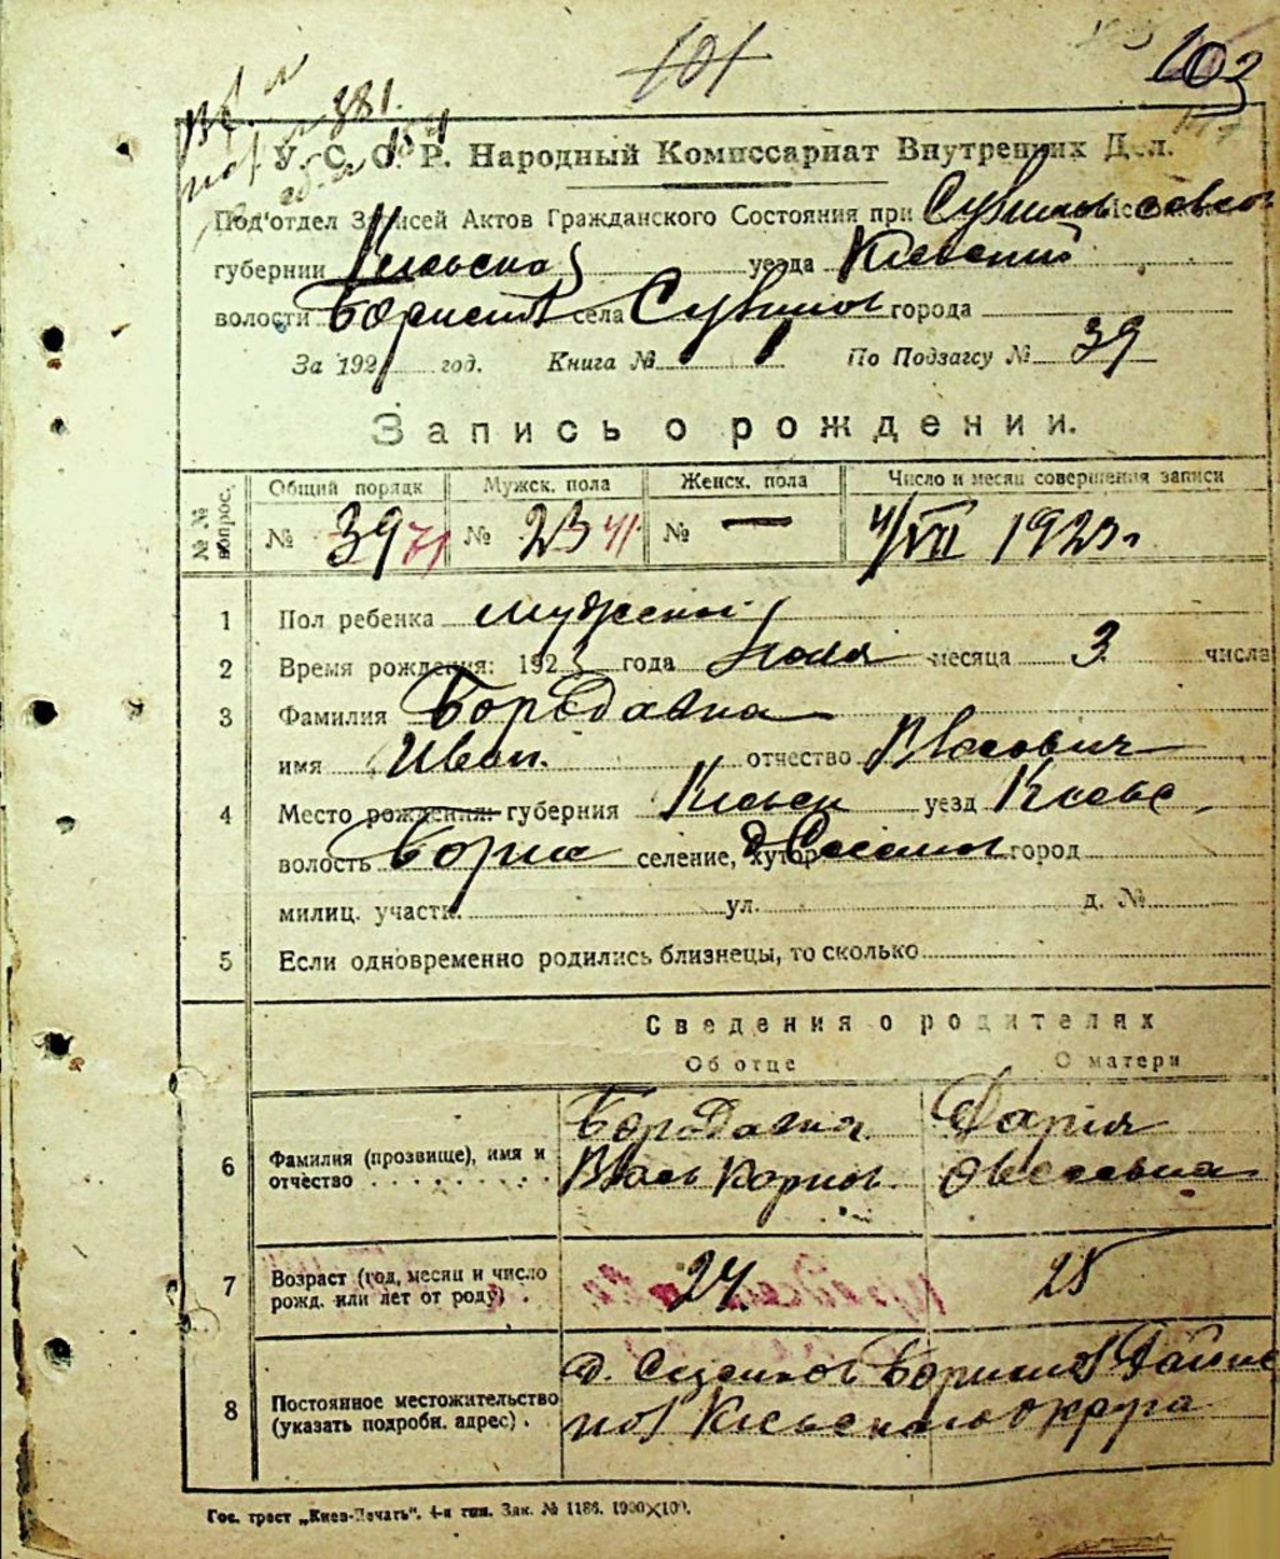 101
103
881.
У. С. С. Р. Народный Комиссариат Внутренних Дел.
Под'отдел Записей Актов Гражданского Состояния при
губернии Киевская уезда Киевский
волости села города
За 192 год. Книга № 1 По Подзагсу № 39
Запись о рождении.
№№ вопрос. Общий порядк Мужск. пола Женск. пола Число и месяц совершения записи
№ 39 71 № 23 41 № — 4/VII 1923 г.
1 Пол ребенка мужской
2 Время рождения: 1923 года Июля месяца 3 числа
3 Фамилия Бородавка
имя Иван. отчество Власович
4 Место рождения: губерния Киевск уезд Киевс
волость селение, хутор город
милиц. участк. ул. д. №
5 Если одновременно родились близнецы, то сколько
Сведения о родителях
Об отце О матери
6 Фамилия (прозвище), имя и отчество Бородавка Дария
Влас Корнов.
7 Возраст (год, месяц и число рожд. или лет от роду) 24. 25
8 Постоянное местожительство (указать подробн. адрес).
Киевского округа
Гос. трест „Киев-Печать“. 4-я тип. Зак. № 1186. 1900×100.